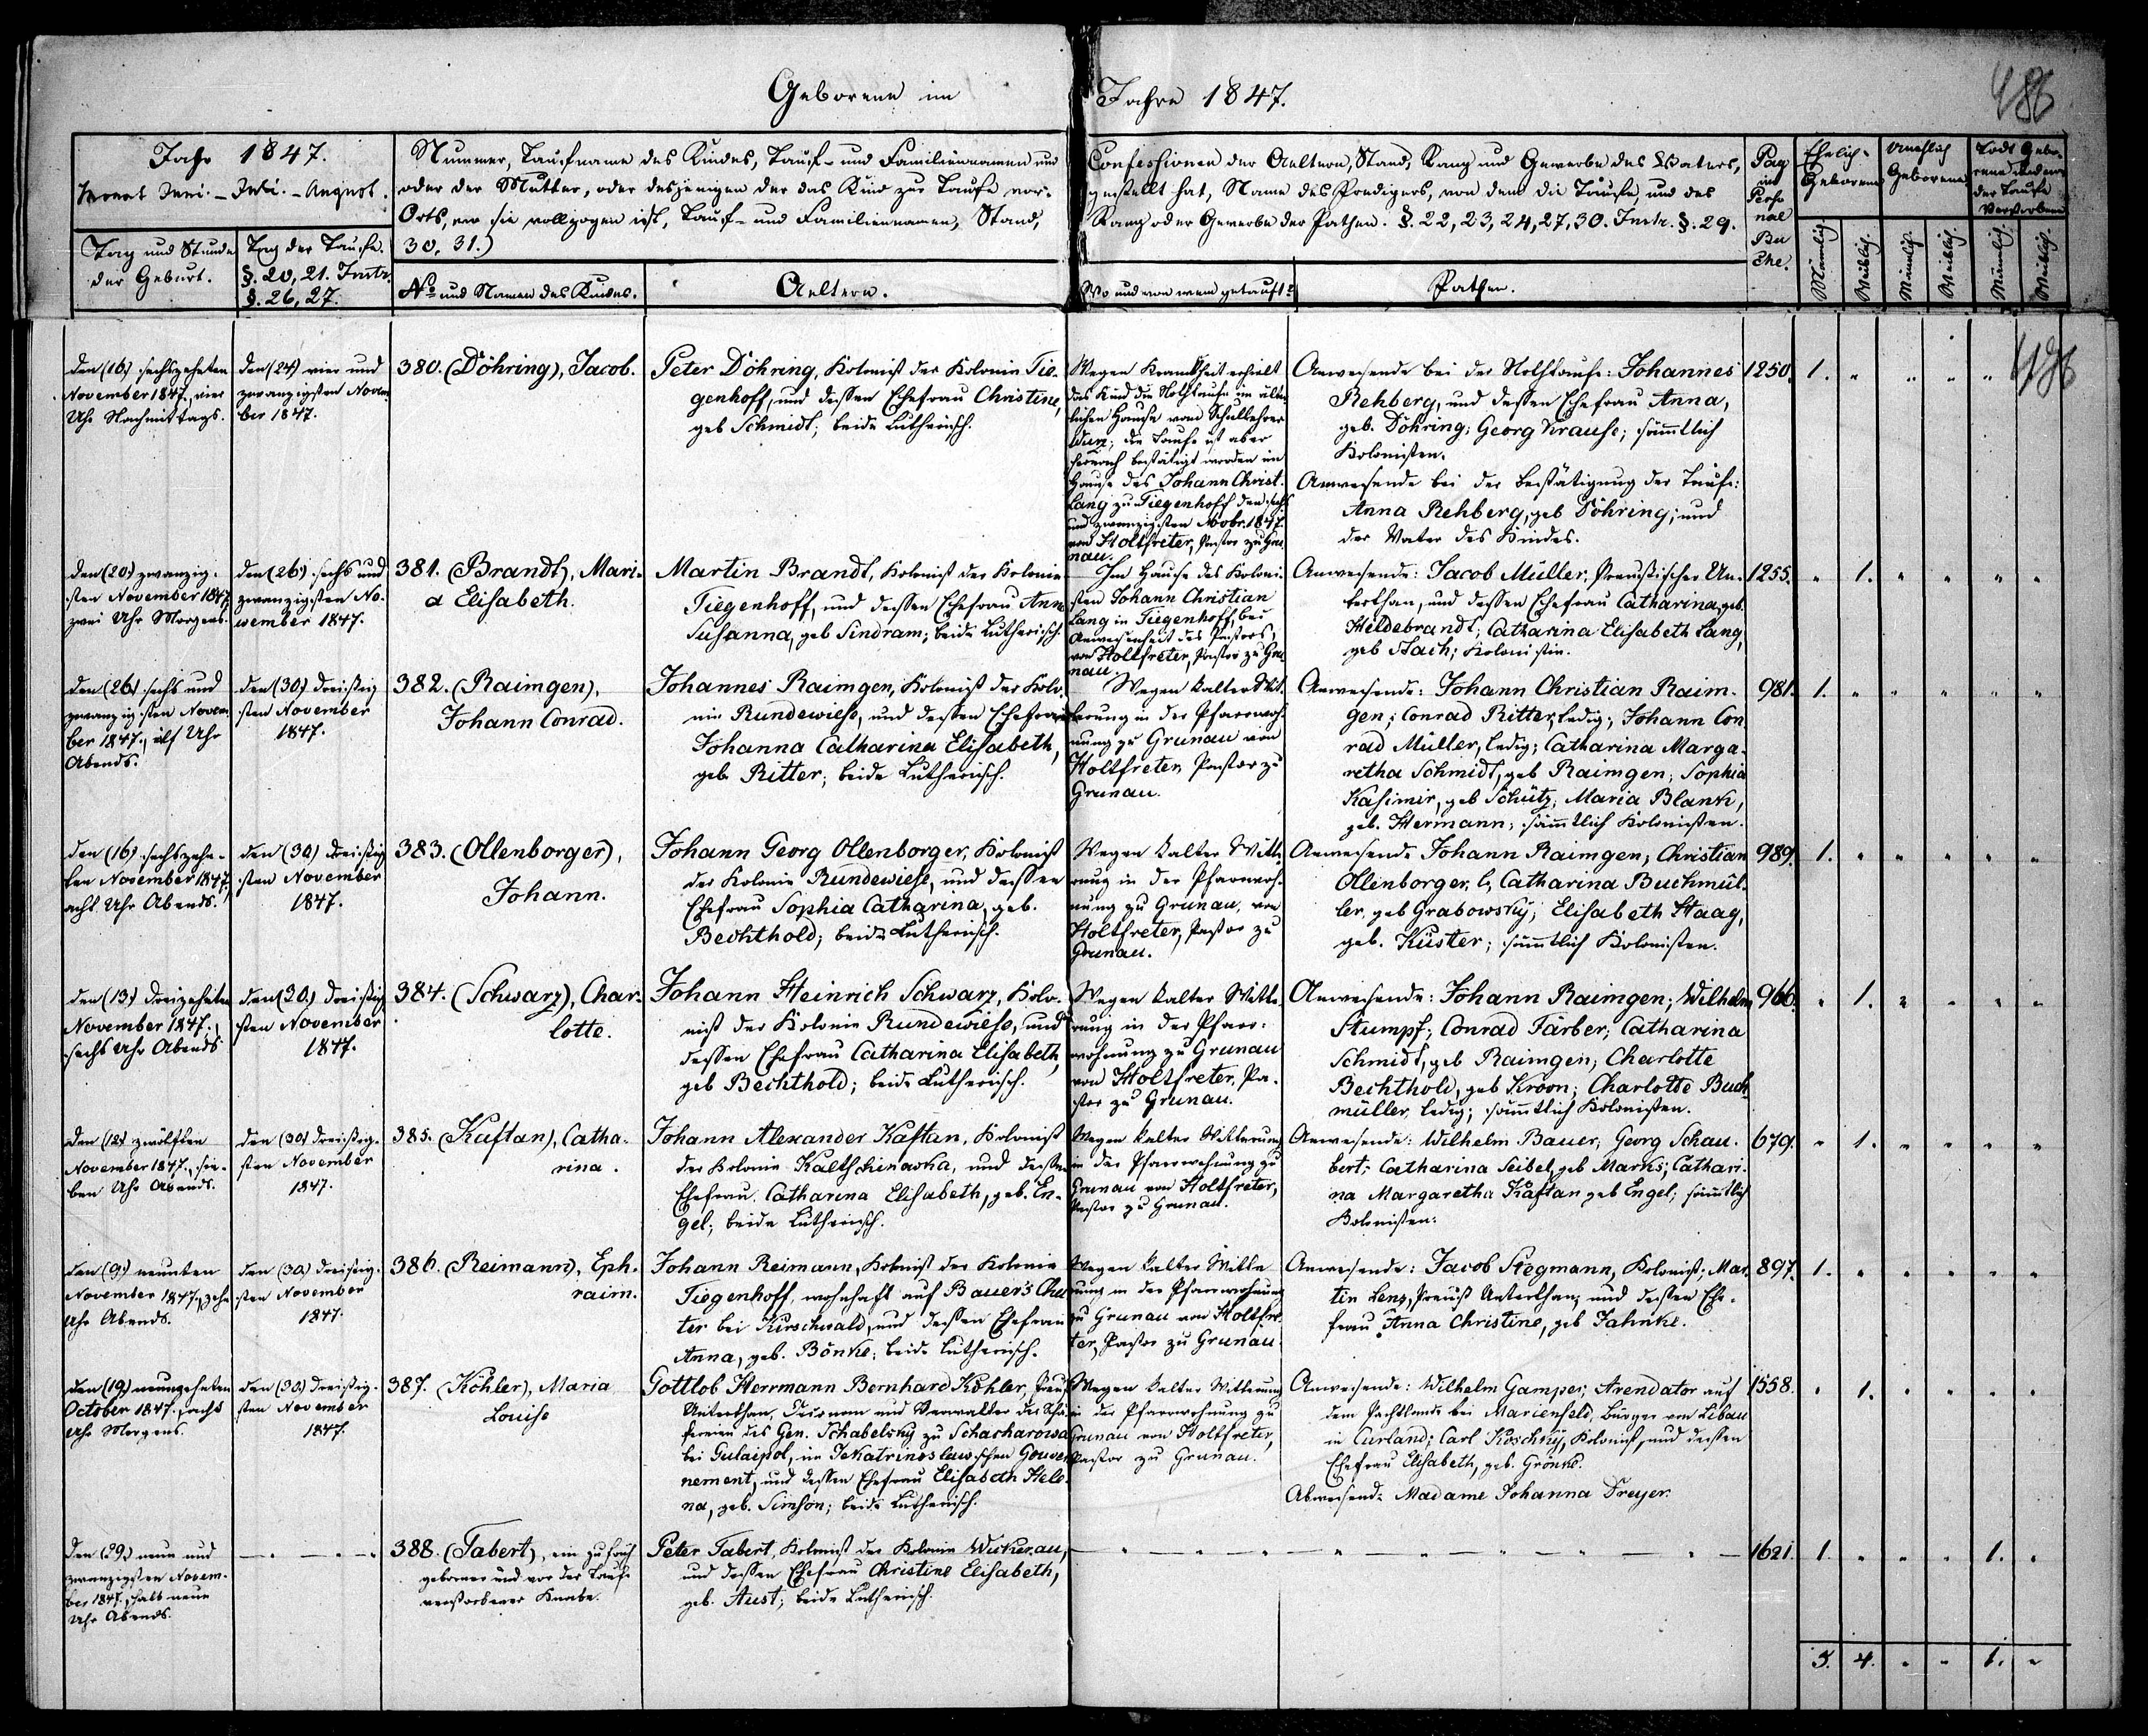 Geborene im Jahre 1847.
486
Jahr 1847.
Monat Juni. – Juli. – August.
Tag und Stunde
der Geburt.
Tag der Taufe.
§. 20, 21. Instr.
§. 26, 27.
Nummer, Taufname des Kindes, Tauf- und Familiennamen und
oder der Mutter, oder desjenigen der das Kind zur Taufe vor-
Orts, wo sie vollzogen ist, Tauf- und Familiennamen, Stand,
30, 31.)
No und Namen des Kindes.
Aeltern.
Confessionen der Aeltern, Stand, Rang und Gewerbe des Vaters,
gestellt hat, Name des Predigers, von dem die Taufe, und des
Rang oder Gewerbe der Pathen. §. 22, 23, 24, 27, 30. Instr. §. 29.
Wo und von wem getauft?
Pathen.
Pag
im
Perso
nal
Bu
che.
Ehelich-
Geborene
Unehlich
Geborene
Todt Gebo-
rene und vor
der Taufe
Verstorbene
Männlich.
Weiblich.
Männlich.
Weiblich.
Männlich.
Weiblich.
486
den (16.) sechszehnten
November 1847., vier
Uhr Nachmittags.
den (24) vier und
zwanzigsten Novem-
ber 1847.
380. (Döhring), Jacob.
Peter Döhring, Kolonist der Kolonie Tie-
genhoff, und dessen Ehefrau Christine,
geb Schmidt; beide Lutherisch.
Wegen Krankheit erhielt
das Kind die Nothtaufe im älter-
lichen Hause vom Schullehrer
die Taufe ist aber
hernach bestätigt worden im
Hause des Johann Christ.
Lang zu Tiegenhoff den sechs
und zwanzigsten Novbr. 1847.
von Holtfreter, Pastor zu Gru
nau.
Anwesende bei der Nothtaufe: Johannes
Rehberg, und dessen Ehefrau Anna,
geb. Döhring; Georg Krause; sämmtlich
Kolonisten.
Anwesende bei der Bestätigung der Taufe:
Anna Rehberg, geb Döhring; und
der Vater des Kindes.
1250. 1. " " " "
den (20) zwanzig-
sten November 1847.
zwei Uhr Morgens.
den (26) sechs und
zwanzigsten No-
vember 1847.
381. (Brandt), Mari-
a Elisabeth.
Martin Brandt, Kolonist der Kolonie
Tiegenhoff, und dessen Ehefrau Anna
Susanna, geb Sindram; beide Lutherisch.
Im Hause des Koloni-
sten Johann Christian
Lang in Tiegenhoff, bei
Anwesenheit des Pastors,
von Holtfreter, Pastor zu Gru
nau.
Anwesende: Jacob Müller, Preußischer Un-
terthan, und dessen Ehefrau Catharina, geb.
Hildebrandt; Catharina Elisabeth Lang,
geb Stach; Kolonistin.
1255. " 1. " " " "
den (26) sechs und
zwanzigsten Novem-
ber 1847., elf Uhr
Abends.
den (30.) dreißig
sten November
1847.
382. (Raimgen),
Johann Conrad.
Johannes Raimgen, Kolonist der Kolo-
nie Rundewiese, und dessen Ehefrau
Johanna Catharina Elisabeth,
geb Ritter; beide Lutherisch.
Wegen kalter Wit-
terung in der Pfarrwoh-
nung zu Grunau von
Holtfreter, Pastor zu
Grunau.
Anwesende: Johann Christian Raim-
gen; Conrad Ritter, ledig; Johann Con
rad Müller, ledig; Catharina Marga-
retha Schmidt, geb Raimgen; Sophia
Kasimir, geb Schütz; Maria Blank,
geb. Hermann; sämmtlich Kolonisten.
981. 1. " " " " "
den (16) sechszehn-
ten November 1847,
acht Uhr Abends.
den (30.) dreißig
sten November
1847.
383. (Ollenborger),
Johann.
Johann Georg Ollenborger, Kolonist
der Kolonie Rundewiese, und dessen
Ehefrau Sophia Catharina, geb.
Bechthold; beide Lutherisch.
Wegen kalter Witte-
rung in der Pfarrwoh-
nung zu Grunau, von
Holtfreter, Pastor zu
Grunau.
Anwesende Johann Raimgen; Christian
Ollenborger, l; Catharina Buchmül-
ler, geb Grabowsky; Elisabeth Haag,
geb. Küster; sämmtlich Kolonisten.
989. 1. " " " " "
den (13.) dreizehnten
November 1847.,
sechs Uhr Abends
den (30.) dreißig
sten November
1847.
384. (Schwarz), Char-
lotte.
Johann Heinrich Schwarz, Kolo-
nist der Kolonie Rundewiese, und
dessen Ehefrau Catharina Elisabeth,
geb Bechthold; beide Lutherisch.
Wegen kalter Witte-
rung in der Pfarr-
wohnung zu Grunau
von Holtfreter, Pa-
stor zu Grunau.
Anwesende: Johann Raimgen; Wilhelm
Stumpf; Conrad Färber; Catharina
Schmidt, geb Raimgen; Charlotte
Bechthold, geb Kroon; Charlotte Buch
müller, ledig; sämmtlich Kolonisten.
966. " 1. " " " "
den (12) zwölften
November 1847., sie-
ben Uhr Abends.
den (30) dreißig-
sten November
1847.
385. (Kaftan), Catha-
rina.
Johann Alexander Kaftan, Kolonist
der Kolonie Kaltschinowka, und dessen
Ehefrau Catharina Elisabeth, geb. En-
gel; beide Lutherisch.
Wegen kalter Witterung
in der Pfarrwohnung zu
Grunau von Holtfreter,
Pastor zu Grunau.
Anwesende: Wilhelm Bauer; Georg Schau-
bert; Catharina Seibel, geb Marks; Cathari-
na Margaretha Kaftan geb Engel; sämmtlich
Kolonisten.
679. " 1. " " " "
den (9.) neunten
November 1847., zehn
Uhr Abends.
den (30.) dreißig-
sten November
1847.
386. (Reimann), Eph-
raim.
Johann Reimann, Kolonist der Kolonie
Tiegenhoff, wohnhaft auf Bauer's Chu
ter bei Kirschwald, und dessen Ehefrau
Anna, geb. Bönke; beide Lutherisch.
Wegen kalter Witte
rung in der Pfarrwohnung
zu Grunau von Holtfre-
ter, Pastor zu Grunau.
Anwesende: Jacob Stegmann, Kolonist; Mar-
tin Lenz, Preuß Unterthan, und dessen Ehe-
frau Anna Christine, geb Jahnke.
897. 1. " " " " "
den (19.) neunzehnten
October 1847., acht
Uhr Morgens.
den (30.) dreißig-
sten November
1847.
387. (Köhler), Maria
Louise
Gottlob Herrmann Bernhard Köhler, Preuß
Unterthan, Oeconom und Verwalter der Schä-
fereien des Gen. Schabelsky zu Schacharowa
bei Gulaipol, im Jekatrinoslaw'schen Gouver
nement, und dessen Ehefrau Elisabeth Hele-
na, geb. Simson; beide Lutherisch.
Wegen kalter Witterung
in der Pfarrwohnung zu
Grunau von Holtfreter,
Pastor zu Grunau.
Anwesende: Wilhelm Gamper, Arendator auf
dem Pachtlande bei Marienfeld, Bürger von Libau
in Curland; Carl Koschky, Kolonist, und dessen
Ehefrau Elisabeth, geb. Grönke.
Abwesende Madame Johanna Dreyer.
1558. " 1. " " " "
den (29.) neun und
zwanzigsten Novem-
ber 1847., halb neun
Uhr Abends.
388. (Tabert), ein zu früh
geborener und vor der Taufe
verstorbener Knabe.
Peter Tabert, Kolonist der Kolonie Wickerau,
und dessen Ehefrau Christine Elisabeth,
geb. Aust; beide Lutherisch.
1621. 1. " " " 1. "
5. 4. " " 1. "